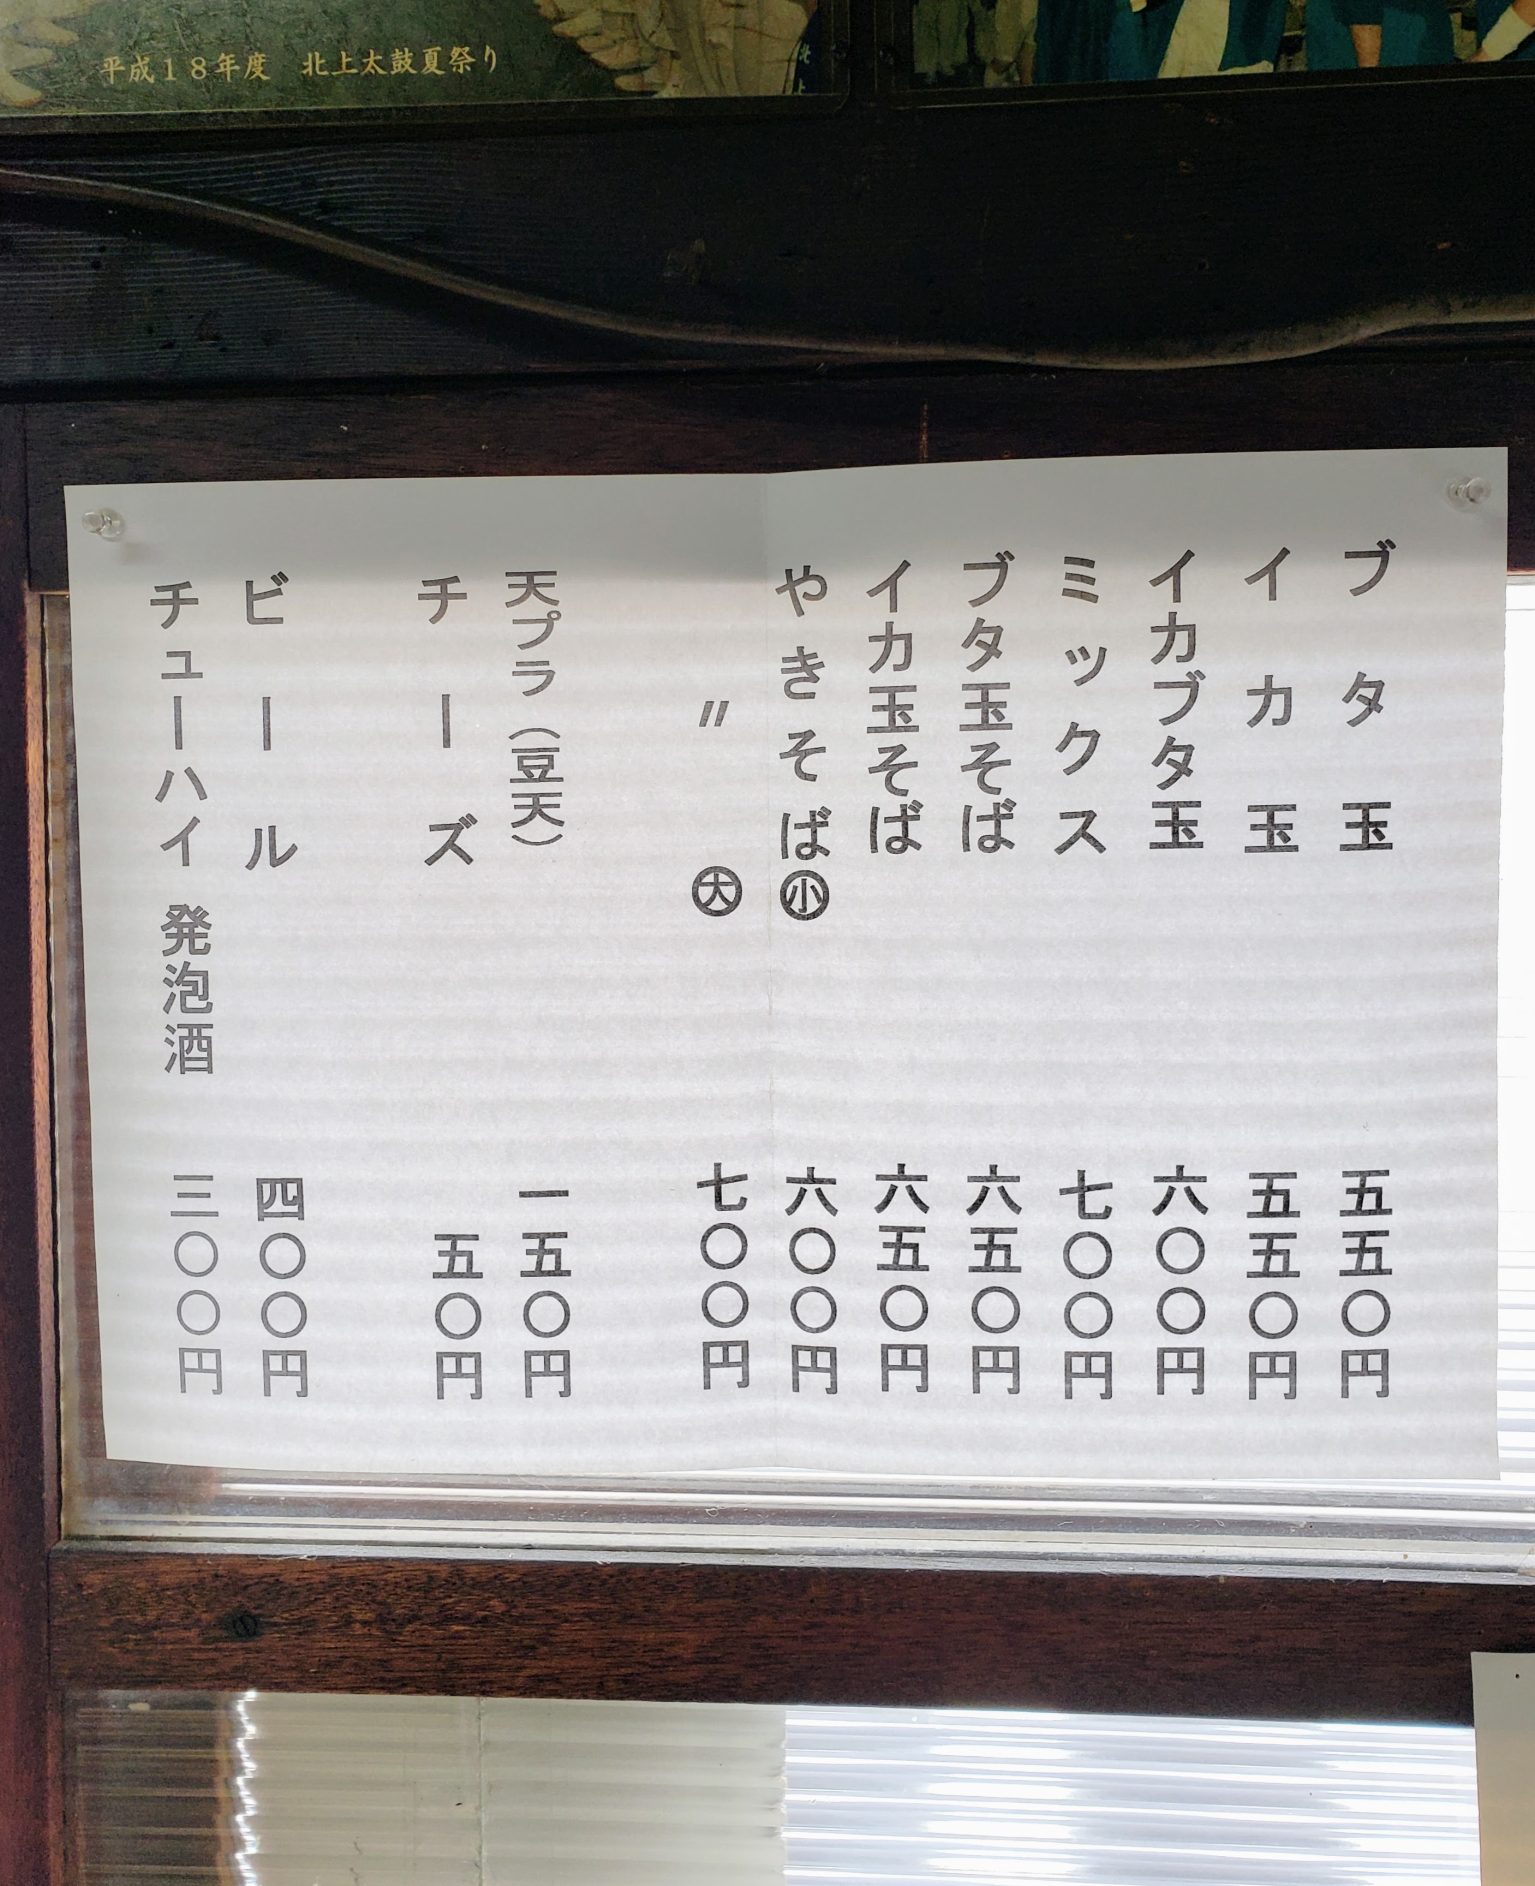 平成18年度 北上太鼓夏祭り
ブタ玉 五五〇円
イカ玉 五五〇円
イカブタ玉 六〇〇円
ミックス 七〇〇円
ブタ玉そば 六五〇円
イカ玉そば 六五〇円
やきそば㊙小 六〇〇円
〃 大 七〇〇円
天プラ(豆天) 一五〇円
チーズ 五〇円
ビール 四〇〇円
チューハイ 発泡酒 三〇〇円